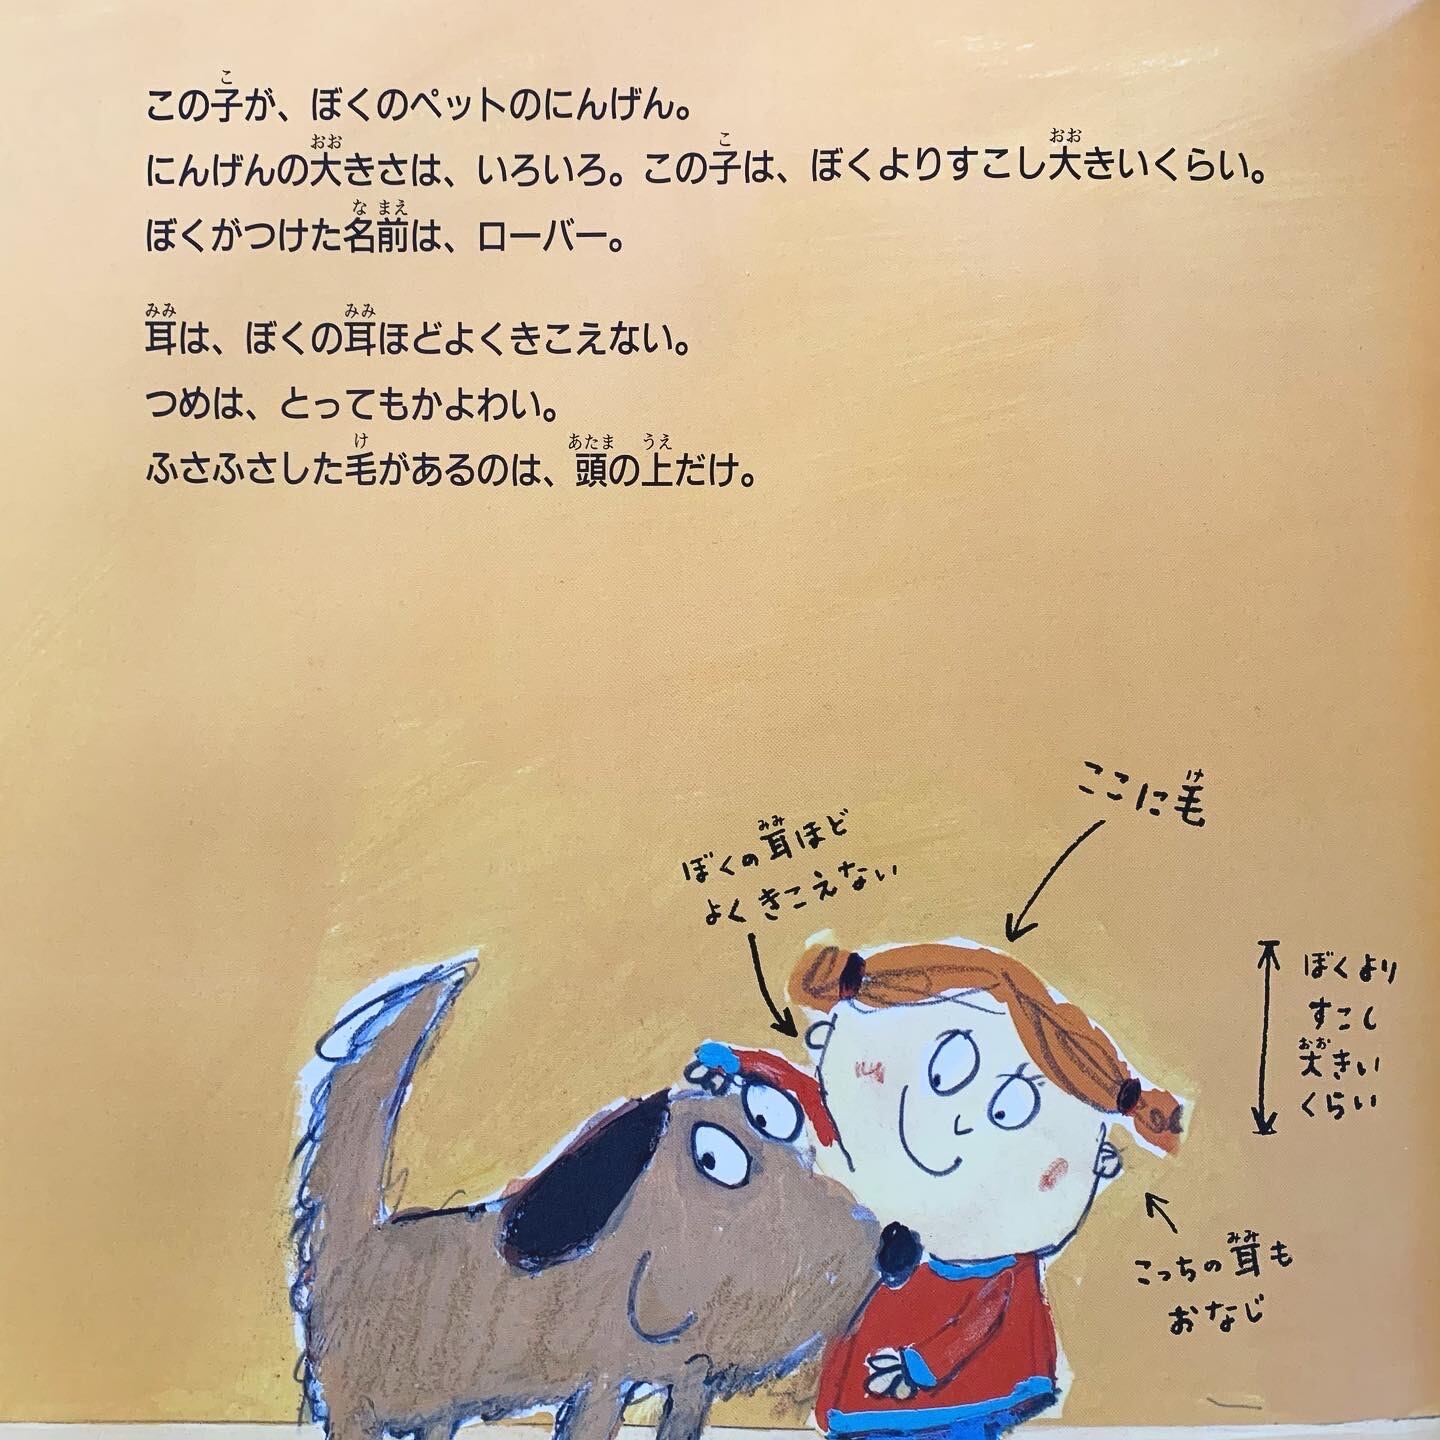 この子が、ぼくのペットのにんげん。
にんげんの大きさは、いろいろ。この子は、ぼくよりすこし大きいくらい。
ぼくがつけた名前は、ローバー。
耳は、ぼくの耳ほどよくきこえない。
つめは、とってもかよわい。
ふさふさした毛があるのは、頭の上だけ。
ここに毛
ぼくの耳ほど
よくきこえない
ぼくより
すこし
大きい
くらい
こっちの耳も
おなじ